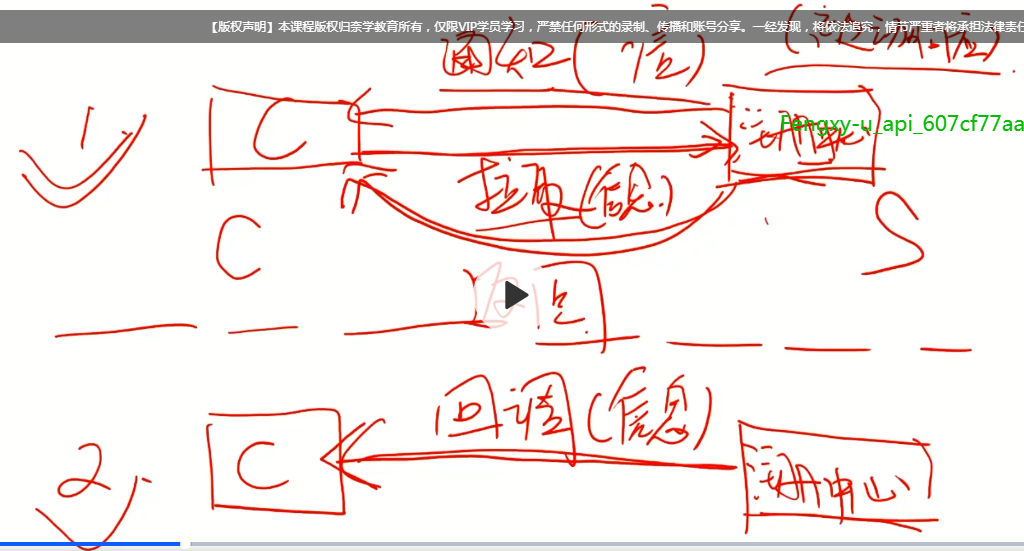 【版权声明】本课程版权归奈学教育所有，仅限VIP学员学习，严禁任何形式的录制、传播和账号分享。一经发现，将依法追究，情节严重者将承担法律责任
通知(
1
C
注册中心
Fengxy-u_api_607cf77aa
拉取(信息)
C
S
回调(信息)
2.
C
注册中心